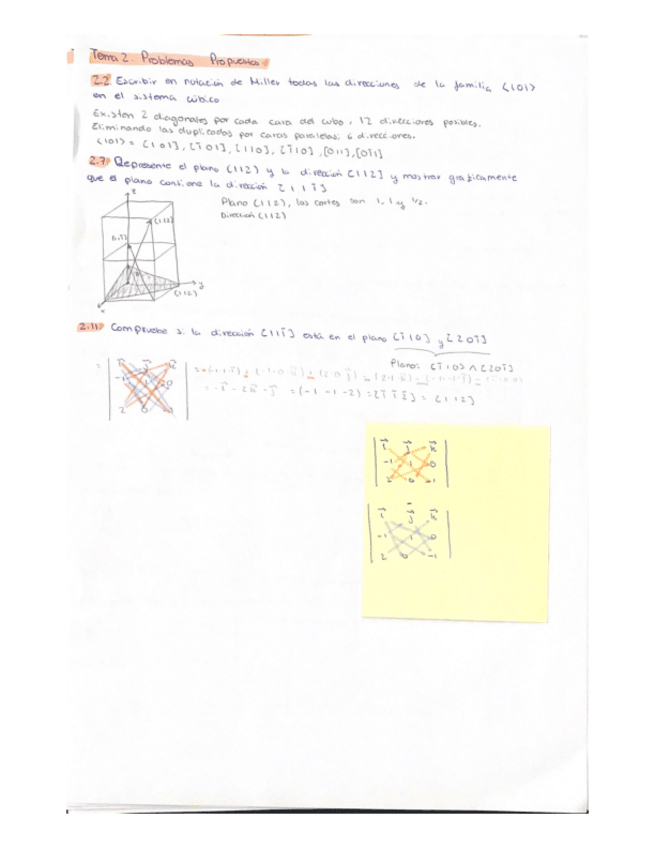 Tema 2. Problemas Propuestos
2.2 Escribir en notación de Miller todas las direcciones de la familia <101>
en el sistema cúbico
Existen 2 diagonales por cada cara del cubo, 12 direcciones posibles.
Eliminando las duplicadas por caras paralelas: 6 direcciones.
<101> = [101], [1̄01], [110], [1̄10], [011], [01̄1]
2.7 Represente el plano (112) y la dirección [112] y mostrar gráficamente
que el plano contiene la dirección [111̄]
Plano (112), los cortes son 1, 1 y 1/2.
Dirección [112]
z
[112]
y
(112)
x
2.11 Compruebe si la dirección [111̄] está en el plano [1̄10] y [201̄]
Plano: [1̄10] ∧ [201̄]
= i j k
-1 1 0
2 0 -1
= -i - 2k - j = (-1 -1 -2) = [1̄ 1̄ 2̄] = [112]
i j k
-1 1 0
2 0 -1
i j k
-1 1 0
2 0 -1